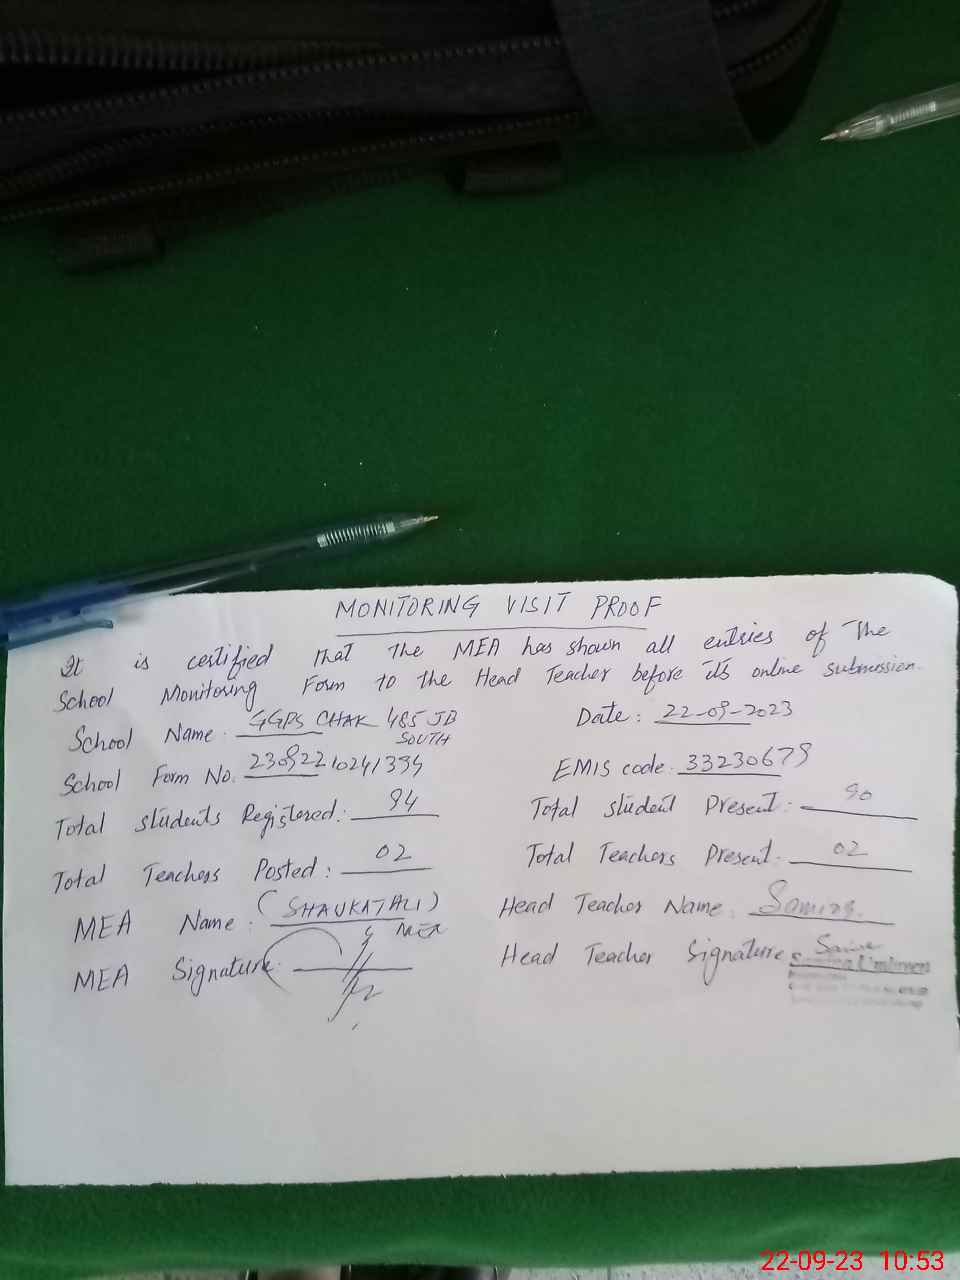 MONITORING VISIT PROOF
It is certified that the MEA has shown all entries of The
School Monitoring Form to the Head Teacher before its online submission.
School Name: GGPS CHAK 485 JB SOUTH
Date: 22-09-2023
School Form No.
EMIS code: 33230679
Total students Registered: 94
Total student Present: 90
Total Teachers Posted: 02
Total Teachers Present: 02
MEA Name: (SHAUKAT ALI) MEA
Head Teacher Name: Samina
MEA Signature:
Head Teacher Signature
22-09-23 10:53